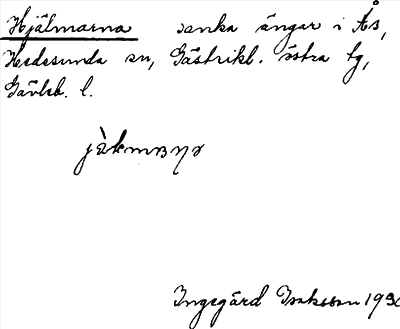 Hjälmarna sanka ängar i Ås,
Hedesunda sn, Gästrikl. östra tg,
Gävleb. l.
Ingegärd Isaksson